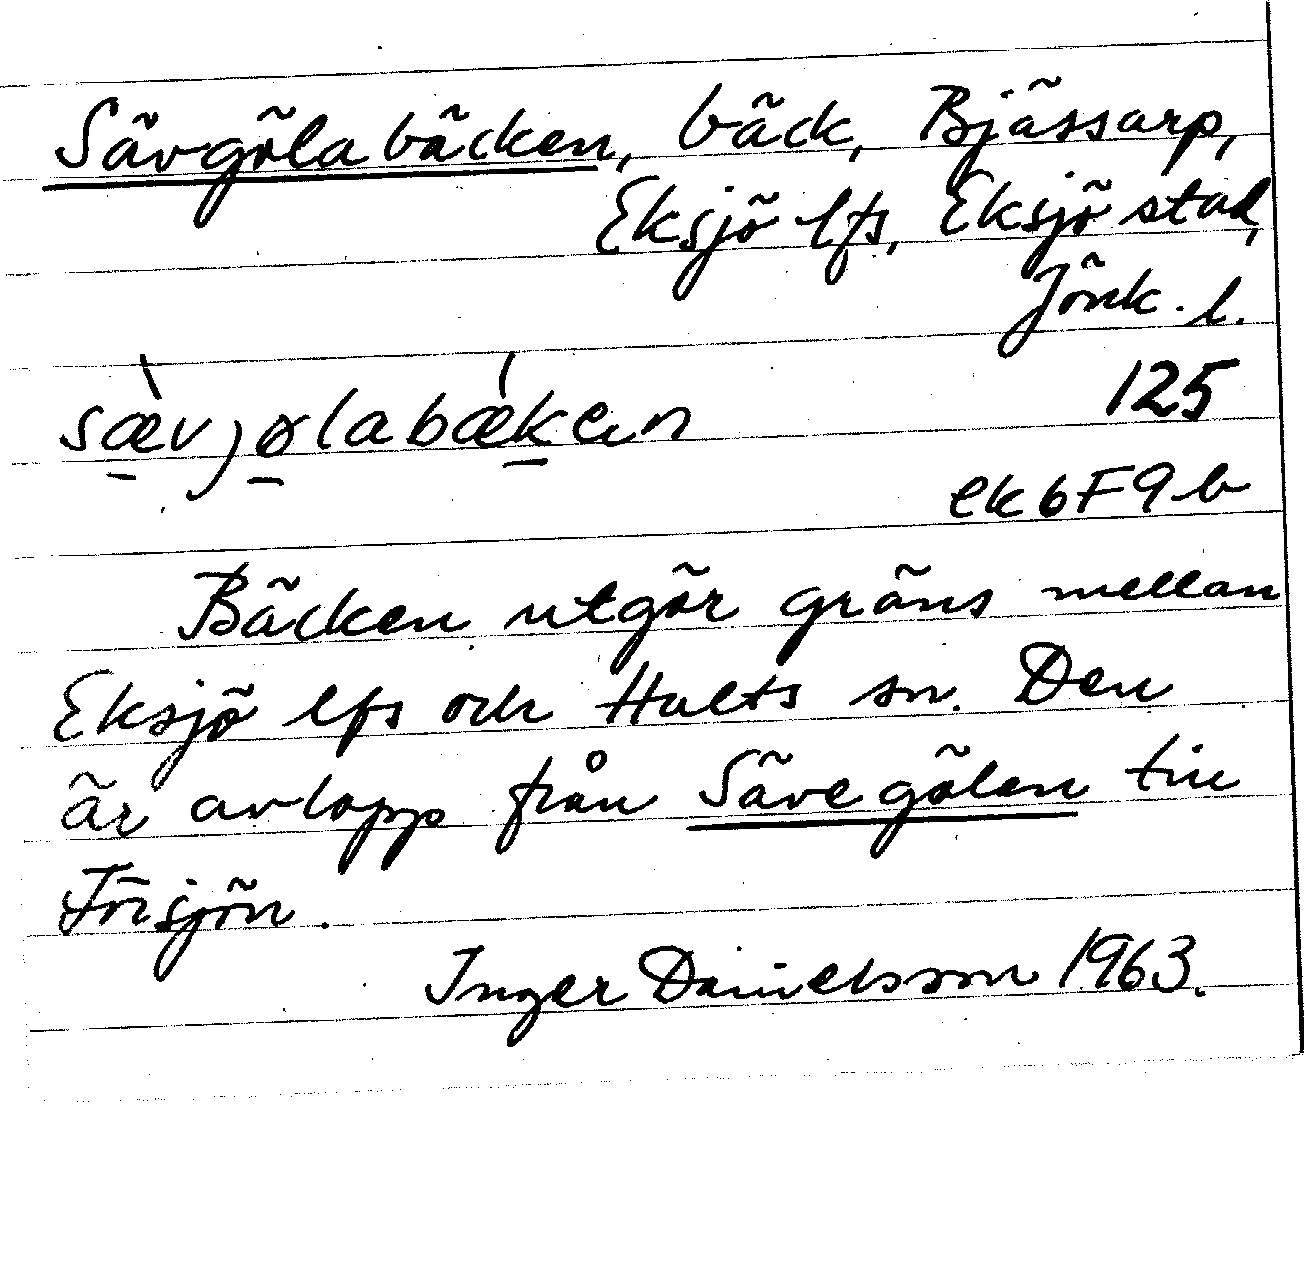 Sävgölabäcken, bäck, Bjässarp,
Eksjö lfs, Eksjö stad,
Jönk. l.
sæ̀vjølabǽken 125
ek 6F9b
Bäcken utgör gräns mellan
Eksjö lfs och Hults sn. Den
är avlopp från Sävegölen till
Försjön.
Inger Danielsson 1963.